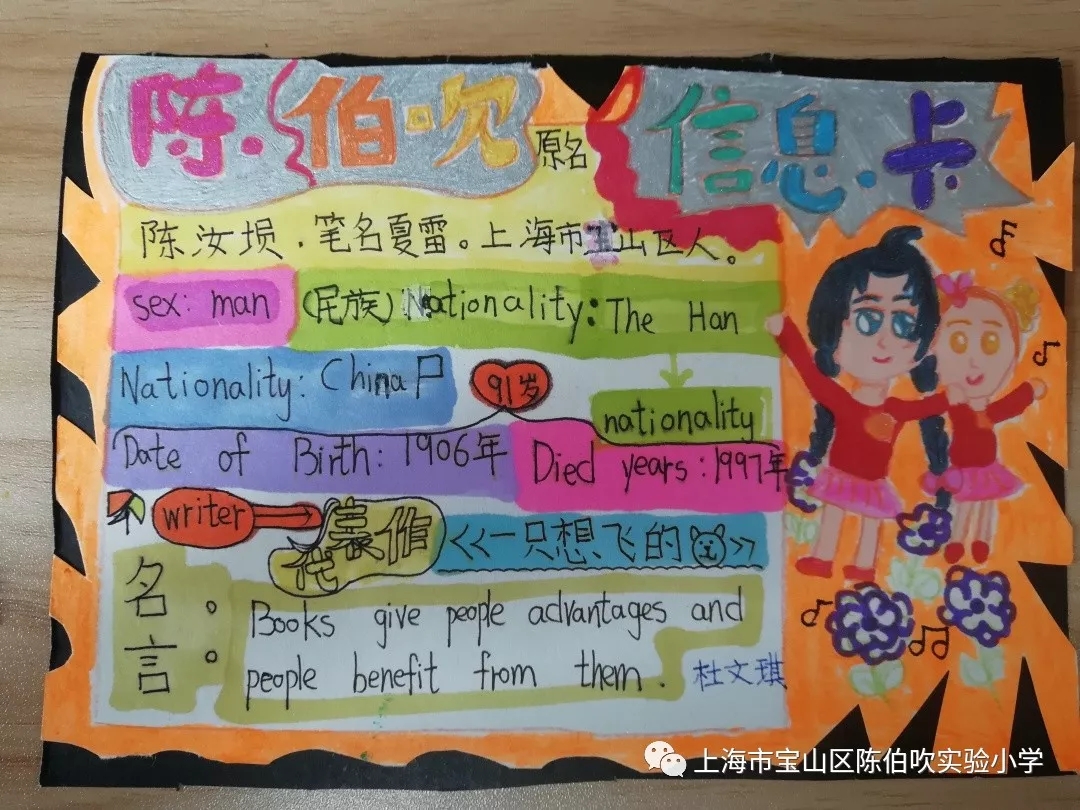 陈伯吹 信息卡
原名
陈汝埙.笔名夏雷。上海市宝山区人。
sex: man (民族) Nationality: The Han
Nationality: China 91岁 nationality
Date of Birth: 1906年 Died years: 1997年
writer 代表作 <<一只想飞的 >>
名言: Books give people advantages and
people benefit from them.
杜文琪
上海市宝山区陈伯吹实验小学